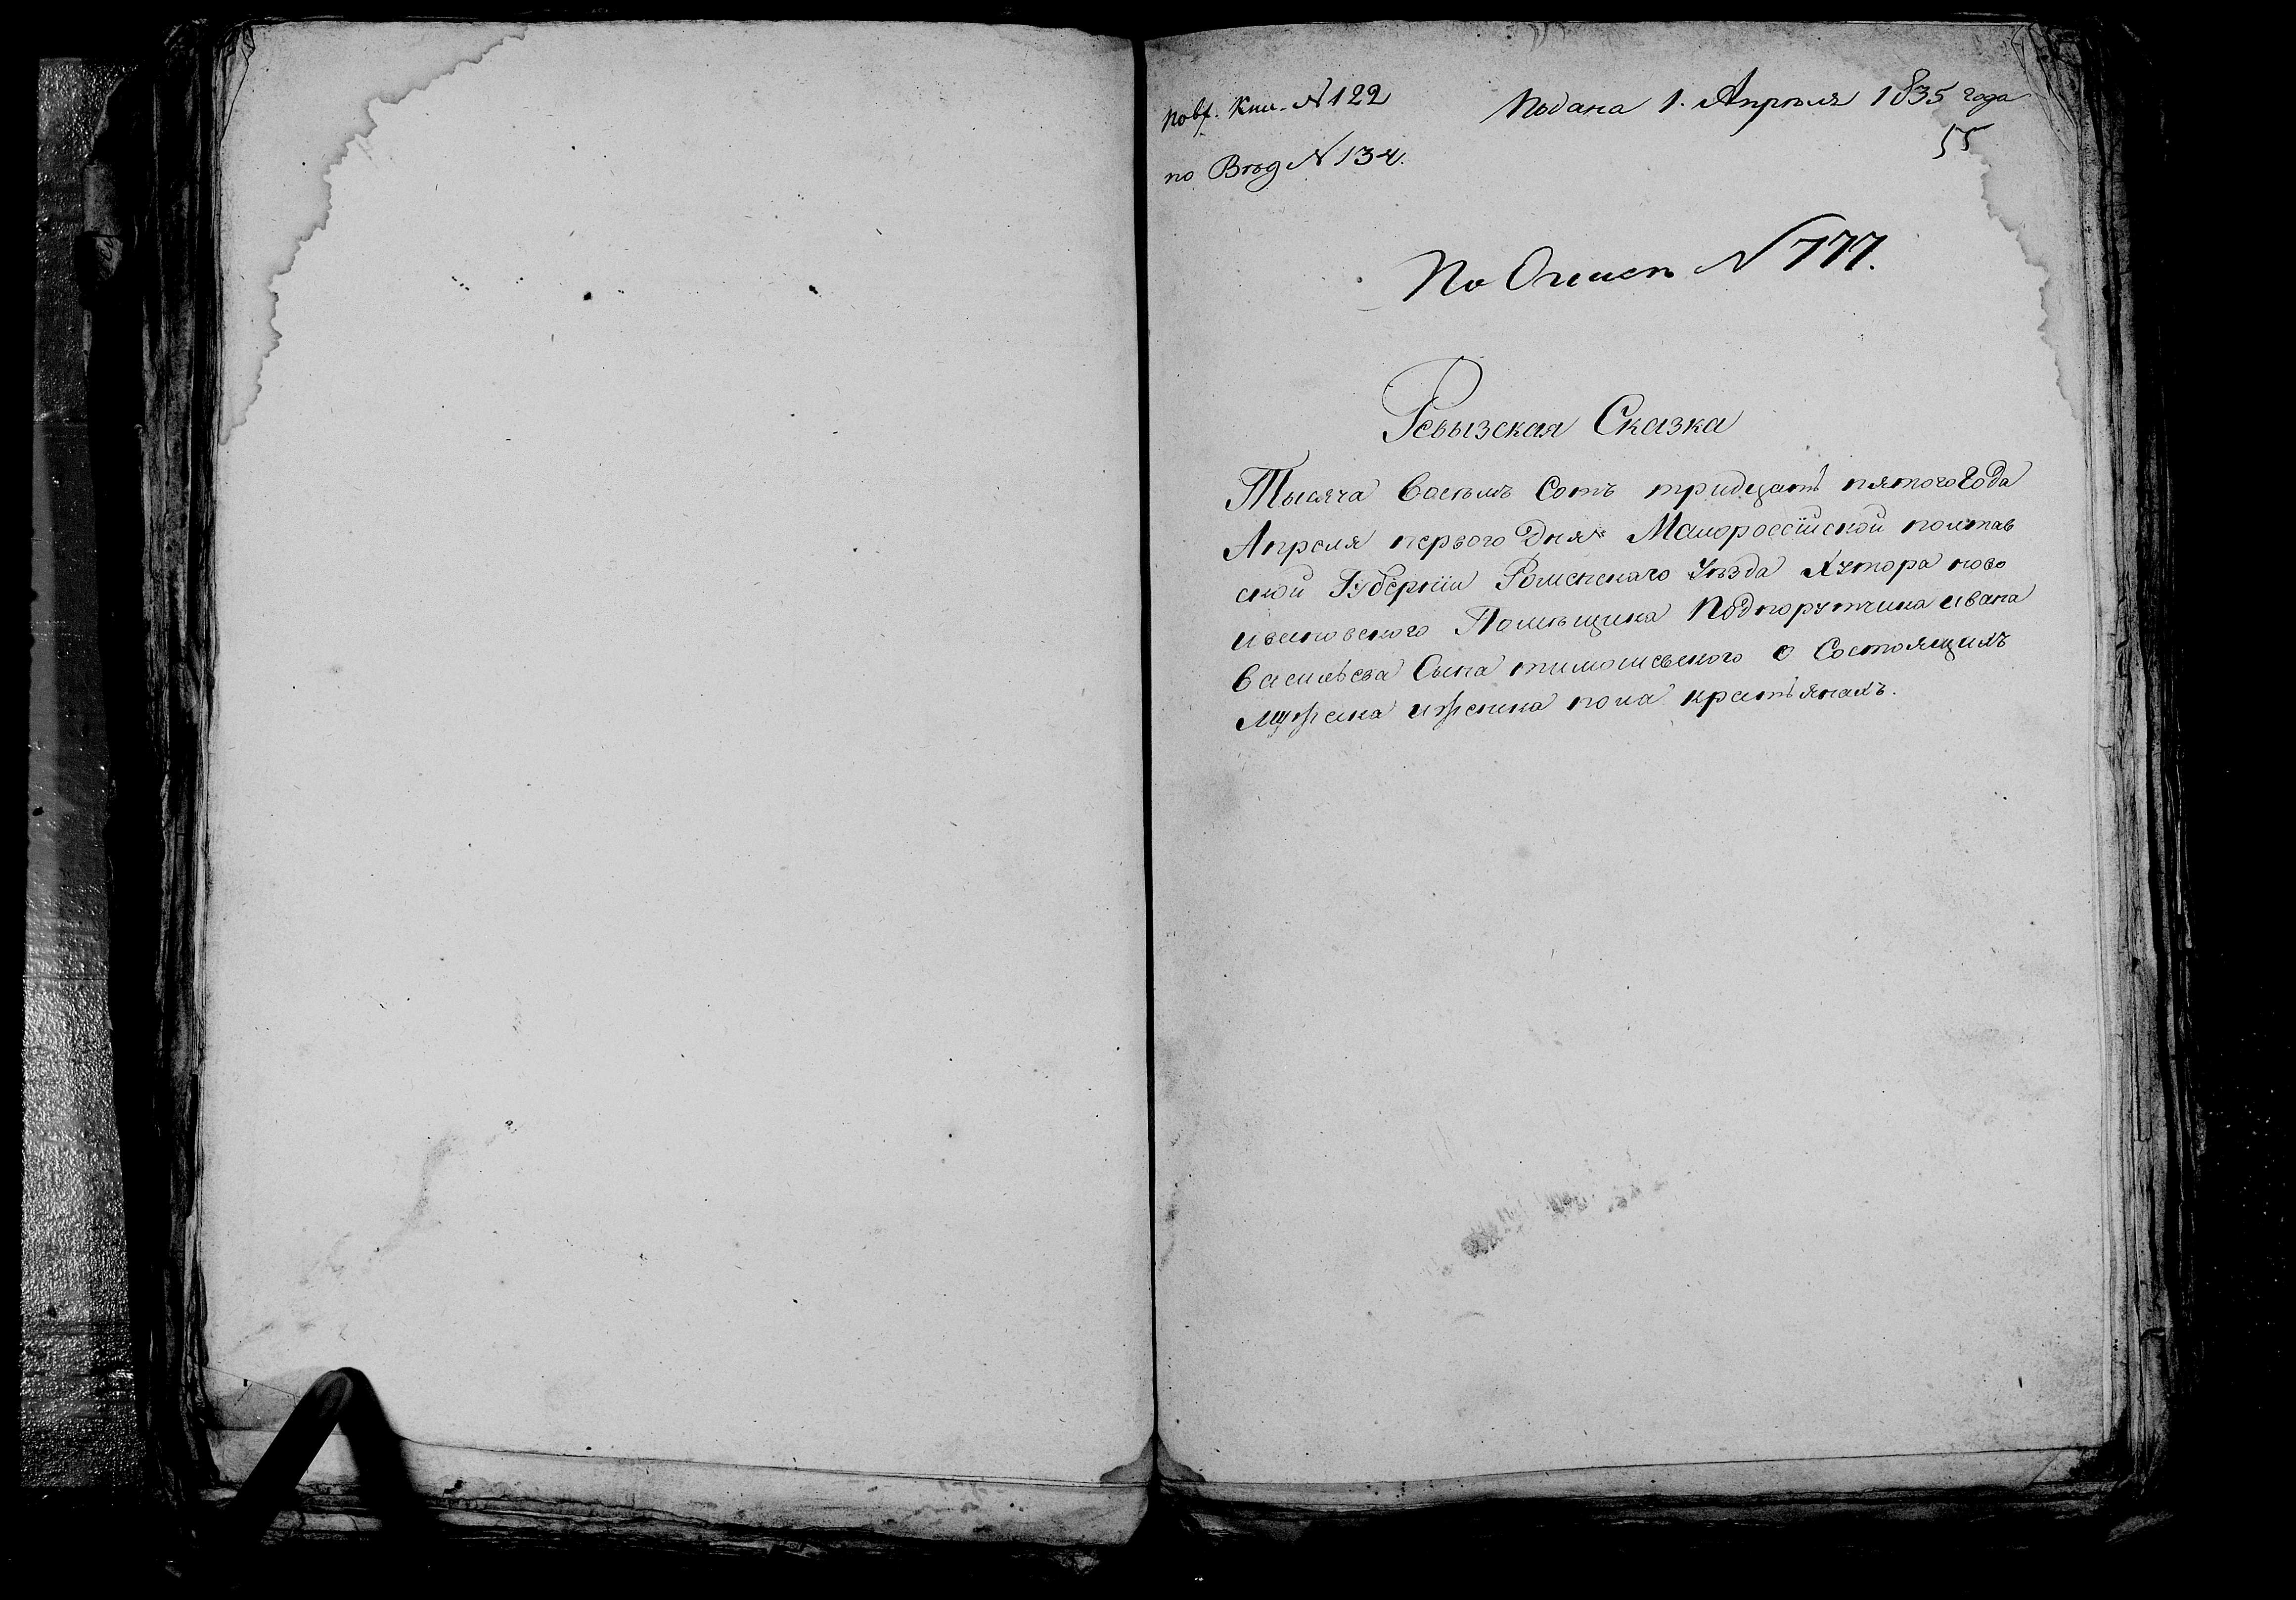 Кни. №122
Подана 1. Апреля 1835 года
55
по Вѣд №134.
По Описи №777.
Ревызская Сказка
Тысяча восѣмъ Сотъ тридцатѣ пятого года
Апреля первого дня Малороссiйской полтав
ской Губернiи Роменскаго Уѣзда Хутора ново
ивановского Помѣщика Подпорутчика ивана
василѣева Сына тимошевского о Состоящихъ
мужеска иженска пола крестѣянахъ.